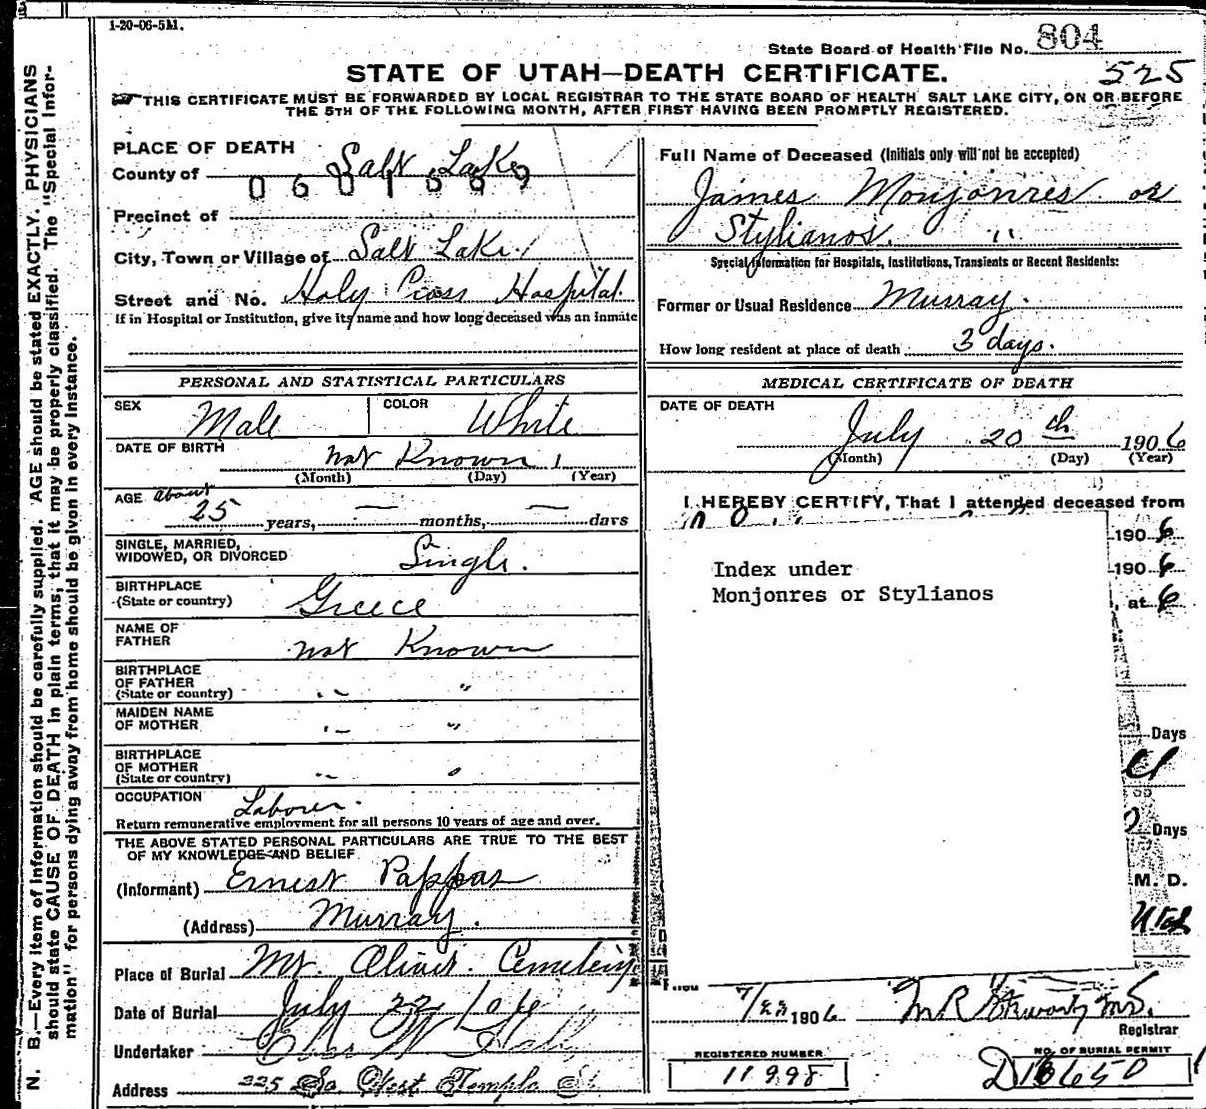 1-20-06-5M.
State Board of Health File No. 804
525
STATE OF UTAH—DEATH CERTIFICATE.
THIS CERTIFICATE MUST BE FORWARDED BY LOCAL REGISTRAR TO THE STATE BOARD OF HEALTH SALT LAKE CITY, ON OR BEFORE
THE 5TH OF THE FOLLOWING MONTH, AFTER FIRST HAVING BEEN PROMPTLY REGISTERED.
N. B.—Every item of information should be carefully supplied. AGE should be stated EXACTLY. PHYSICIANS
should state CAUSE OF DEATH in plain terms; that it may be properly classified. The "Special Infor-
mation" for persons dying away from home should be given in every instance.
PLACE OF DEATH
County of Salt Lake
Precinct of
City, Town or Village of Salt Lake
Street and No. Holy Cross Hospital
If in Hospital or Institution, give its name and how long deceased was an inmate
Full Name of Deceased (Initials only will not be accepted)
James Monjonres or
Stylianos. "
Special Information for Hospitals, Institutions, Transients or Recent Residents:
Former or Usual Residence Murray.
How long resident at place of death 3 days.
PERSONAL AND STATISTICAL PARTICULARS
SEX Male COLOR White
DATE OF BIRTH not Known
(Month) (Day) (Year)
AGE about 25 years, — months, — days
SINGLE, MARRIED,
WIDOWED, OR DIVORCED Single.
BIRTHPLACE
(State or country) Greece
NAME OF
FATHER not Known
BIRTHPLACE
OF FATHER
(State or country) " "
MAIDEN NAME
OF MOTHER " "
BIRTHPLACE
OF MOTHER
(State or country) " "
OCCUPATION Laborer.
Return remunerative employment for all persons 10 years of age and over.
THE ABOVE STATED PERSONAL PARTICULARS ARE TRUE TO THE BEST
OF MY KNOWLEDGE AND BELIEF
(Informant) Ernest Pappas
(Address) Murray.
Place of Burial Mt. Olivet Cemetery
Date of Burial July 22 1906
Undertaker Eber W Hall
Address 225 So West Temple St
MEDICAL CERTIFICATE OF DEATH
DATE OF DEATH
July 20th 1906
(Month) (Day) (Year)
I HEREBY CERTIFY, That I attended deceased from
1906
1906
, at 6
Index under
Monjonres or Stylianos
Days
Days
M. D.
Utah
7/22 1906 M R Stewart M.D.
Registrar
REGISTERED NUMBER
11998
NO. OF BURIAL PERMIT
D16650